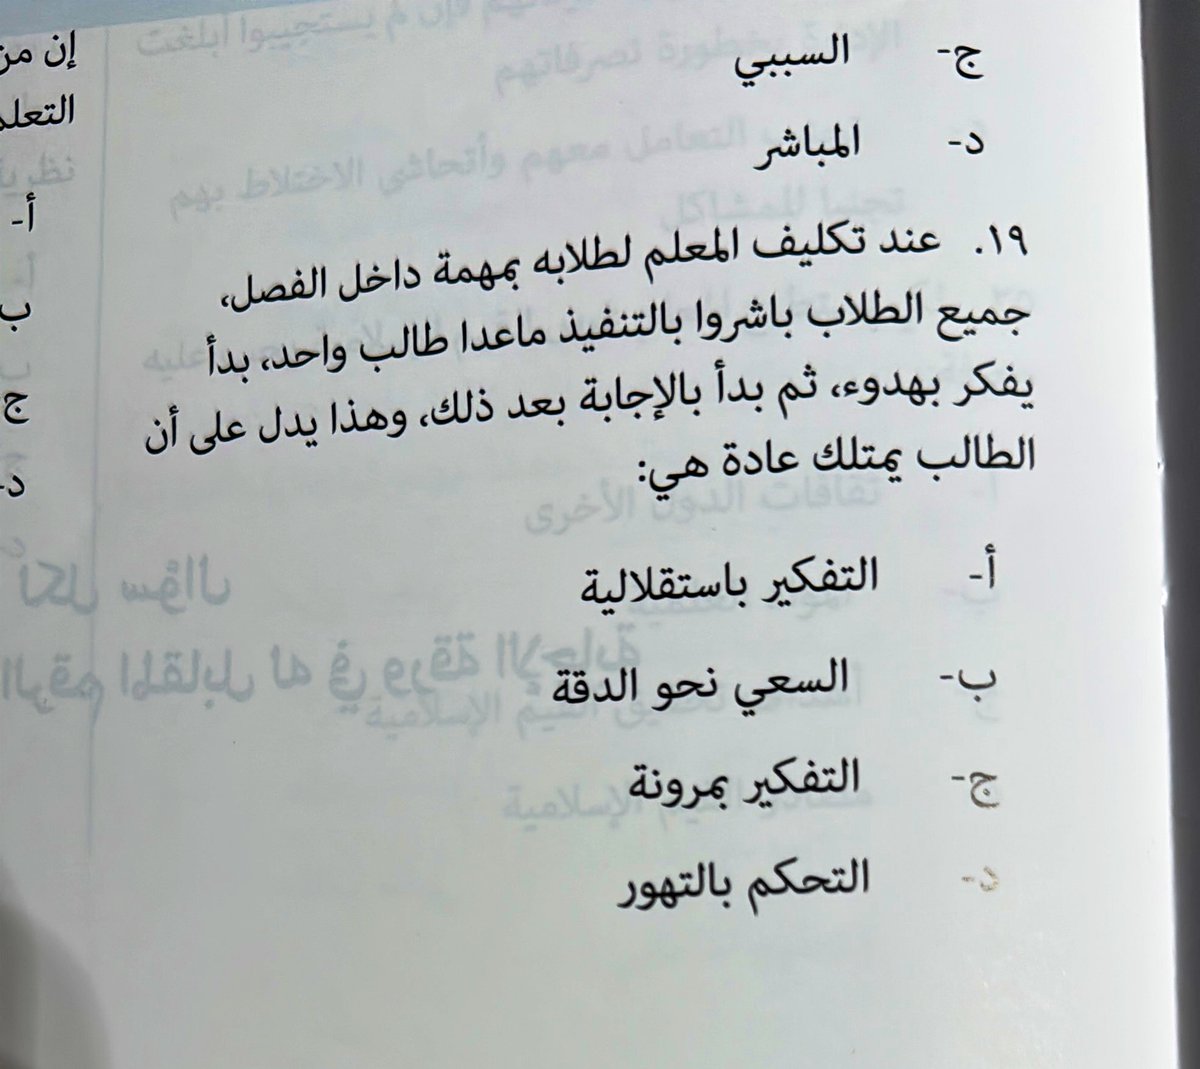 ج- السببي
د- المباشر
١٩. عند تكليف المعلم لطلابه بمهمة داخل الفصل،
جميع الطلاب باشروا بالتنفيذ ماعدا طالب واحد، بدأ
يفكر بهدوء، ثم بدأ بالإجابة بعد ذلك، وهذا يدل على أن
الطالب يمتلك عادة هي:
أ- التفكير باستقلالية
ب- السعي نحو الدقة
ج- التفكير بمرونة
د- التحكم بالتهور
إن من
أ-
ب
ج
د-